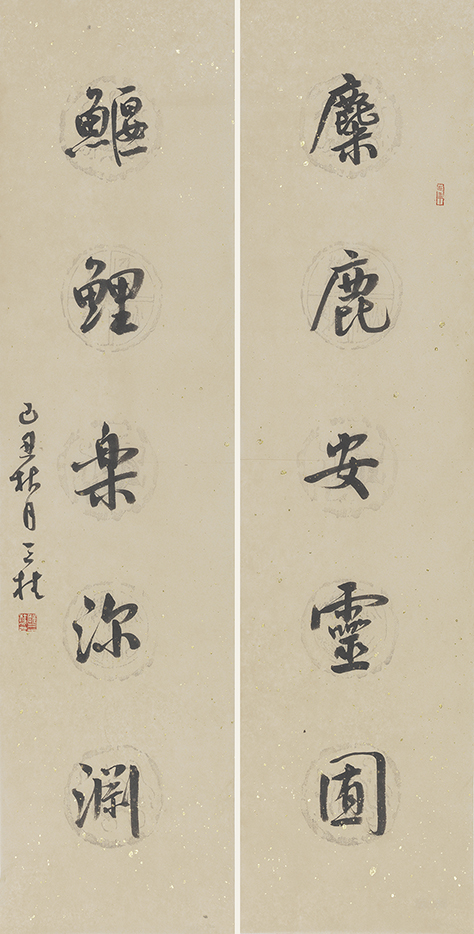 麋鹿安靈囿
鰋鯉楽深淵
己丑秋月三